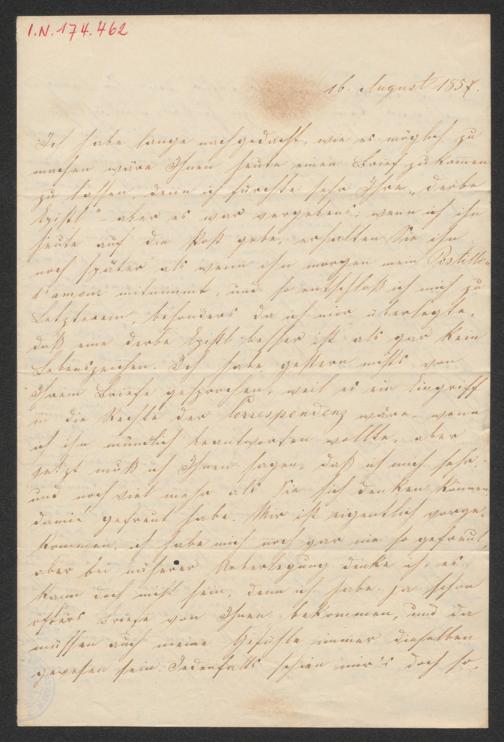 I.N. 174.462
16. August 1857.
Ich habe lange nachgedacht, wie es möglich zu
machen wäre Ihnen heute einen Brief zukommen
zu lassen, denn ich fürchte sehr Ihre „derbe
Epistl“ aber es war vergebens; wenn ich ihn
heute auf die Post gebe, erhalten Sie ihn
noch später als wenn ihn morgen mein Postillon
d'amour mitnimmt, und so entschloß ich mich zu
Letzterem, besonders da ich mir überlegte,
daß eine derbe Epistl besser ist als gar kein
Lebenszeichen. Ich habe gestern nichts von
Ihrem Briefe gesprochen, weil es ein Eingriff
in die Rechte der Correspondenz wäre, wenn
ich ihn mündlich beantworten wollte, aber
jetzt muß ich Ihnen sagen, daß ich mich sehr,
und noch viel mehr als Sie sich denken können
damit gefreut habe. Mir ist eigentlich vorge-
kommen, ich habe mich noch gar nie so gefreut
aber bei näherer Ueberlegung denke ich, es
kann doch nicht sein, denn ich habe ja schon
öfters Briefe von Ihnen bekommen, und da
müssen auch meine Gefühle immer dieselben
gewesen sein. Jedenfalls schien mir's doch so.